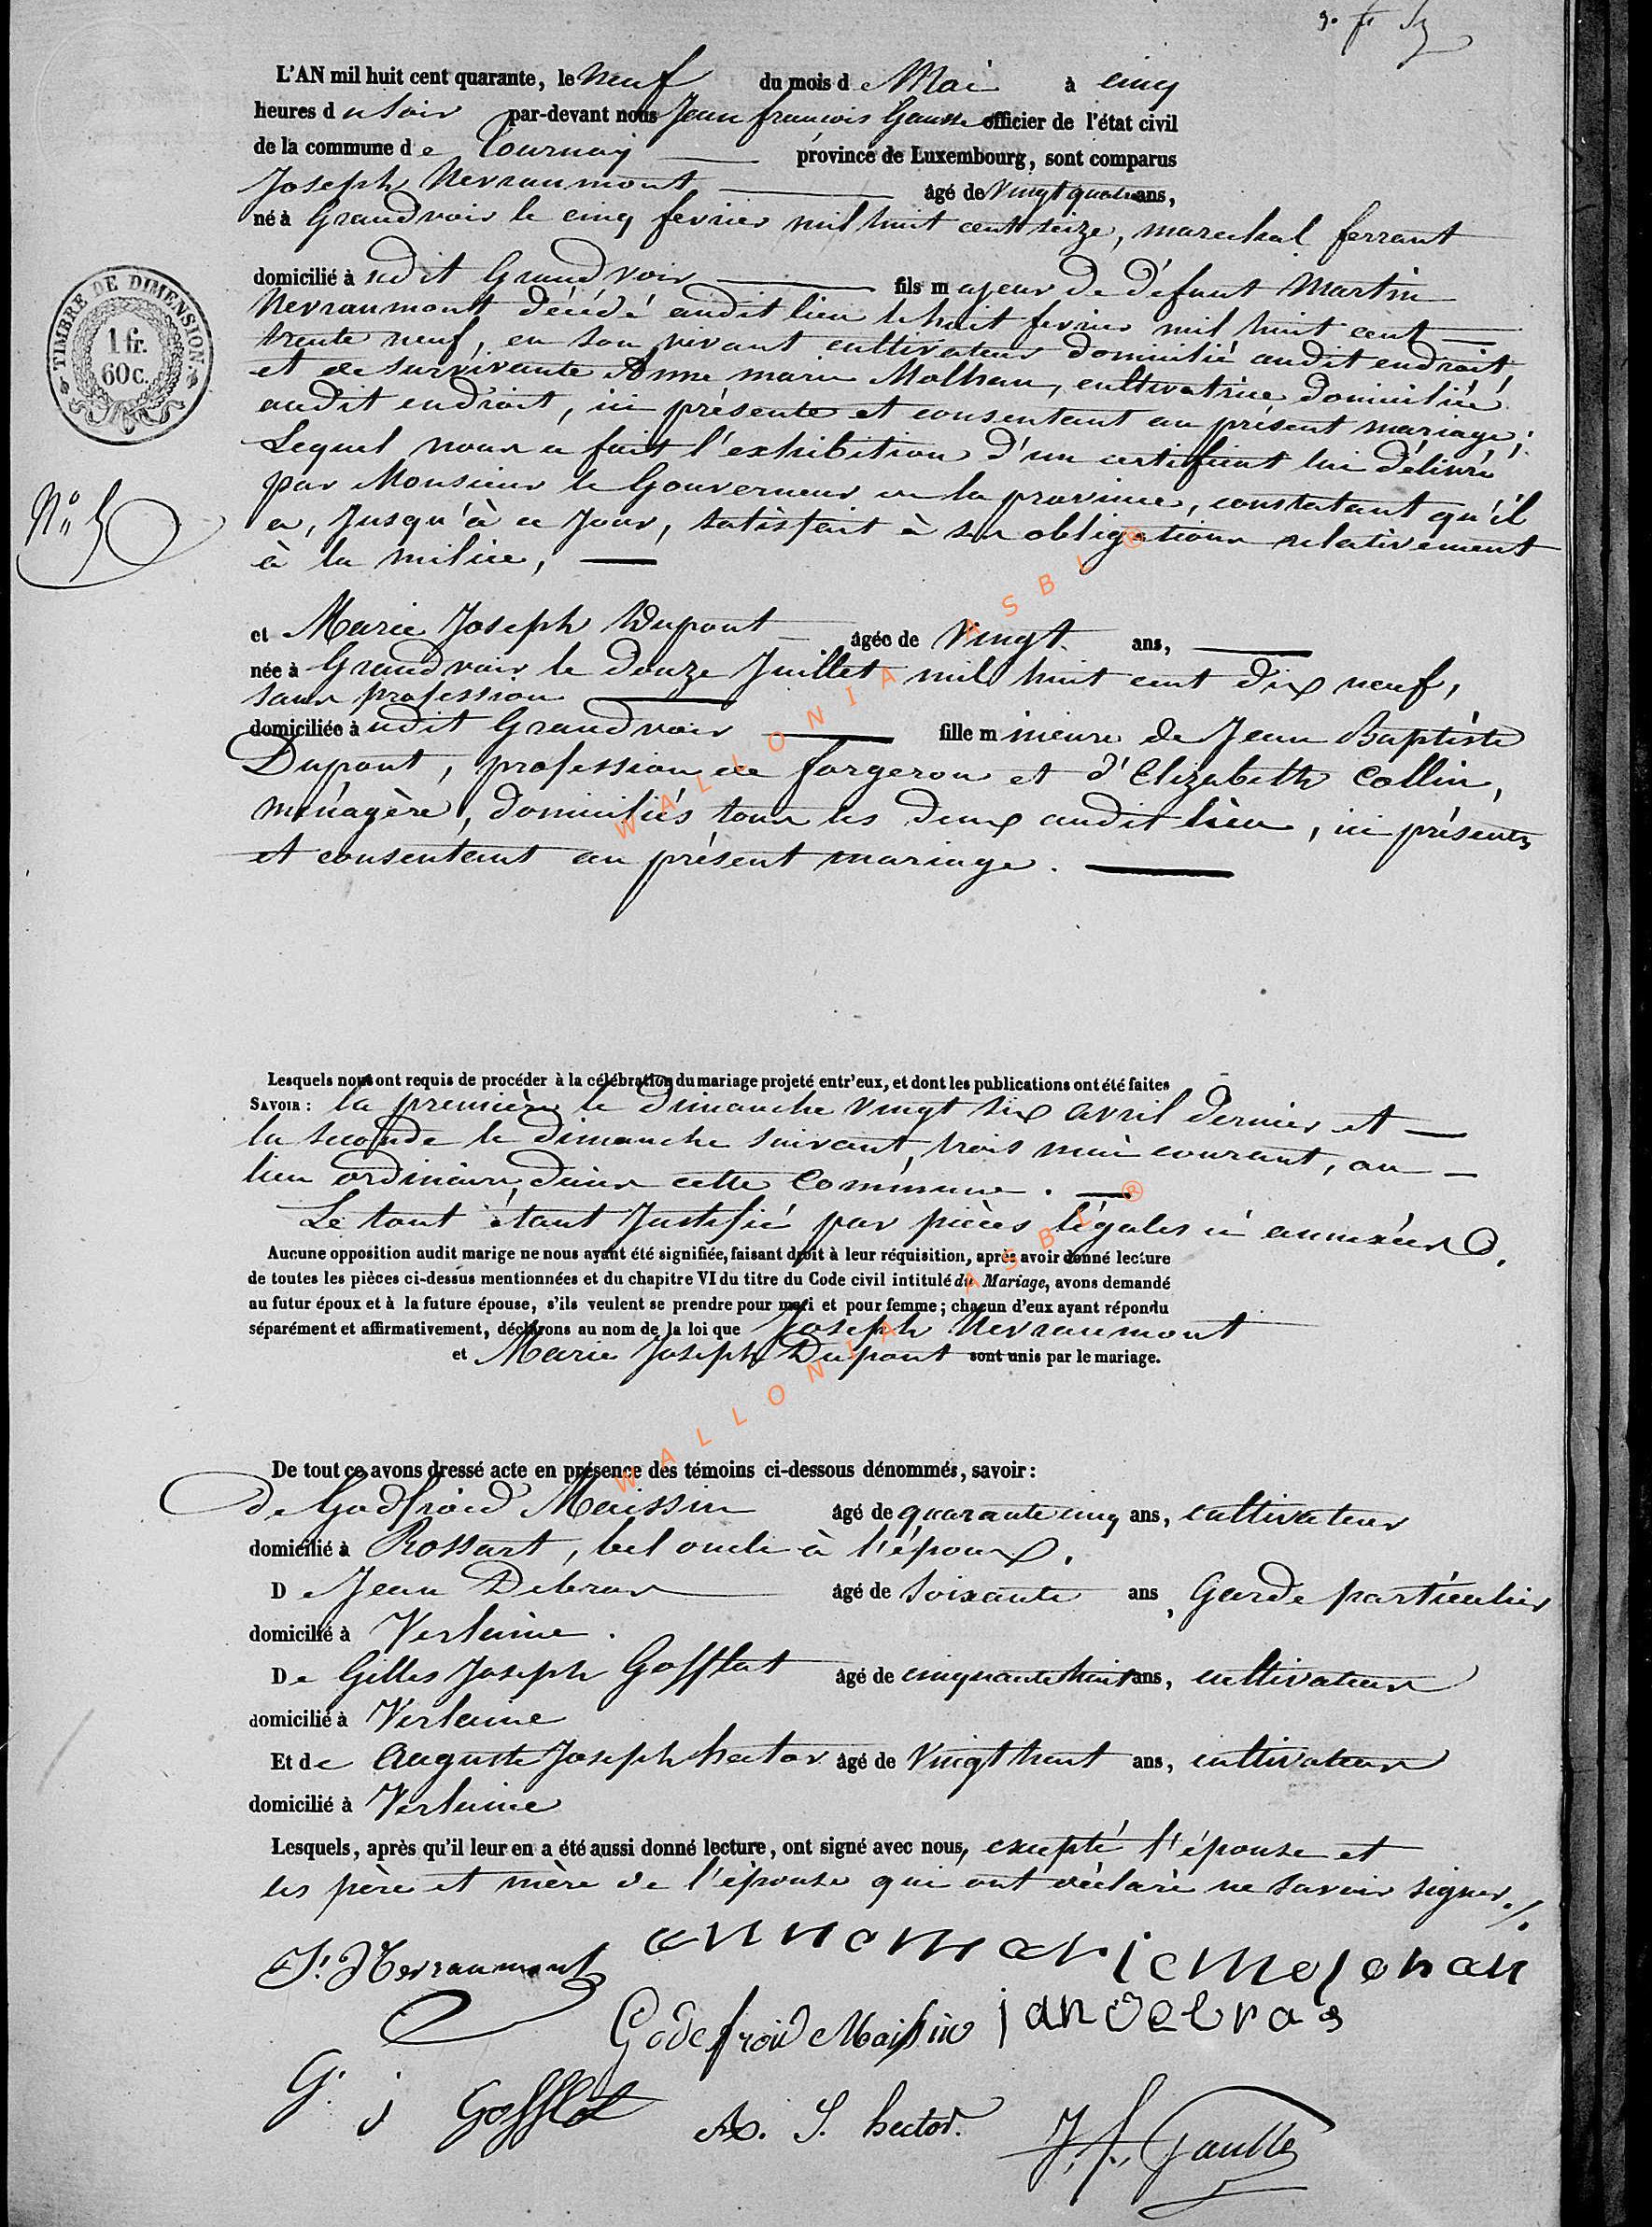 L'AN mil huit cent quarante, le Neuf du mois de Mai à cinq
heures du Soir par-devant nous Jean francois Gausse officier de l'état civil
de la commune de Tournay province de Luxembourg, sont comparus
Joseph Nevraumont âgé de Vingt quatre ans,
né à Grandvoir le cinq fevrier mil huit cent seize, marechal ferrant
domicilié à udit Grandvoir fils majeur de défunt Martin
Nevraumont décédé audit lieu le huit fevrier mil huit cent
trente neuf, en son vivant cultivateur domicilié audit endroit,
et de survivante Anne marie Molhan, cultivatrice domiciliée
audit endroit, ici présente et consentant au présent mariage;
Lequel nous a fait l'exhibition d'un certificat lui délivré
par Monsieur le Gouverneur de la province, constatant qu'il
a, Jusqu'à ce Jour, satisfait à ses obligations relativement
à la milice,
TIMBRE DE DIMENSION.
1 fr.
60 c.
N° 5
et Marie Joseph Dupont âgée de Vingt ans,
née à Grandvoir le douze Juillet mil huit cent dix neuf,
sans profession
domiciliée à udit Grandvoir fille mineure de Jean Baptiste
Dupont, profession de forgeron et d'Elizabeth Collin,
ménagère, domiciliés tous les deux audit lieu, ici présents
et consentant au présent mariage.
Lesquels nous ont requis de procéder à la célébration du mariage projeté entr'eux, et dont les publications ont été faites
SAVOIR : la première le dimanche vingt six avril dernier et
la seconde le dimanche suivant, trois mai courant, au
lieu ordinaire, dans cette Commune.
Le tout étant Justifié par pièces légales ci annexées.
Aucune opposition audit marige ne nous ayant été signifiée, faisant droit à leur réquisition, après avoir donné lecture
de toutes les pièces ci-dessus mentionnées et du chapitre VI du titre du Code civil intitulé du Mariage, avons demandé
au futur époux et à la future épouse, s'ils veulent se prendre pour mari et pour femme ; chacun d'eux ayant répondu
séparément et affirmativement, déclarons au nom de la loi que Joseph Nevraumont
et Marie Joseph Dupont sont unis par le mariage.
De tout ce avons dressé acte en présence des témoins ci-dessous dénommés, savoir :
de Godfroid Maissin âgé de quarante cinq ans, cultivateur
domicilié à Rossart, bel oncle à l'époux.
De Jean Debras âgé de Soixante ans, Garde particulier
domicilié à Verlaine.
De Gilles Joseph Gofflot âgé de cinquante huit ans, cultivateur
domicilié à Verlaine
Et de Auguste Joseph hector âgé de Vingt huit ans, cultivateur
domicilié à Verlaine
Lesquels, après qu'il leur en a été aussi donné lecture, ont signé avec nous, excepté l'épouse et
les père et mère de l'épouse qui ont déclaré ne savoir signer./.
J. Nevraumont annemariemolehan
Godefroid Maissin jandebras
G. j Gofflot A. J. hector. J. f. Gausse
WALLONIA ASBL ®
WALLONIA ASBL ®